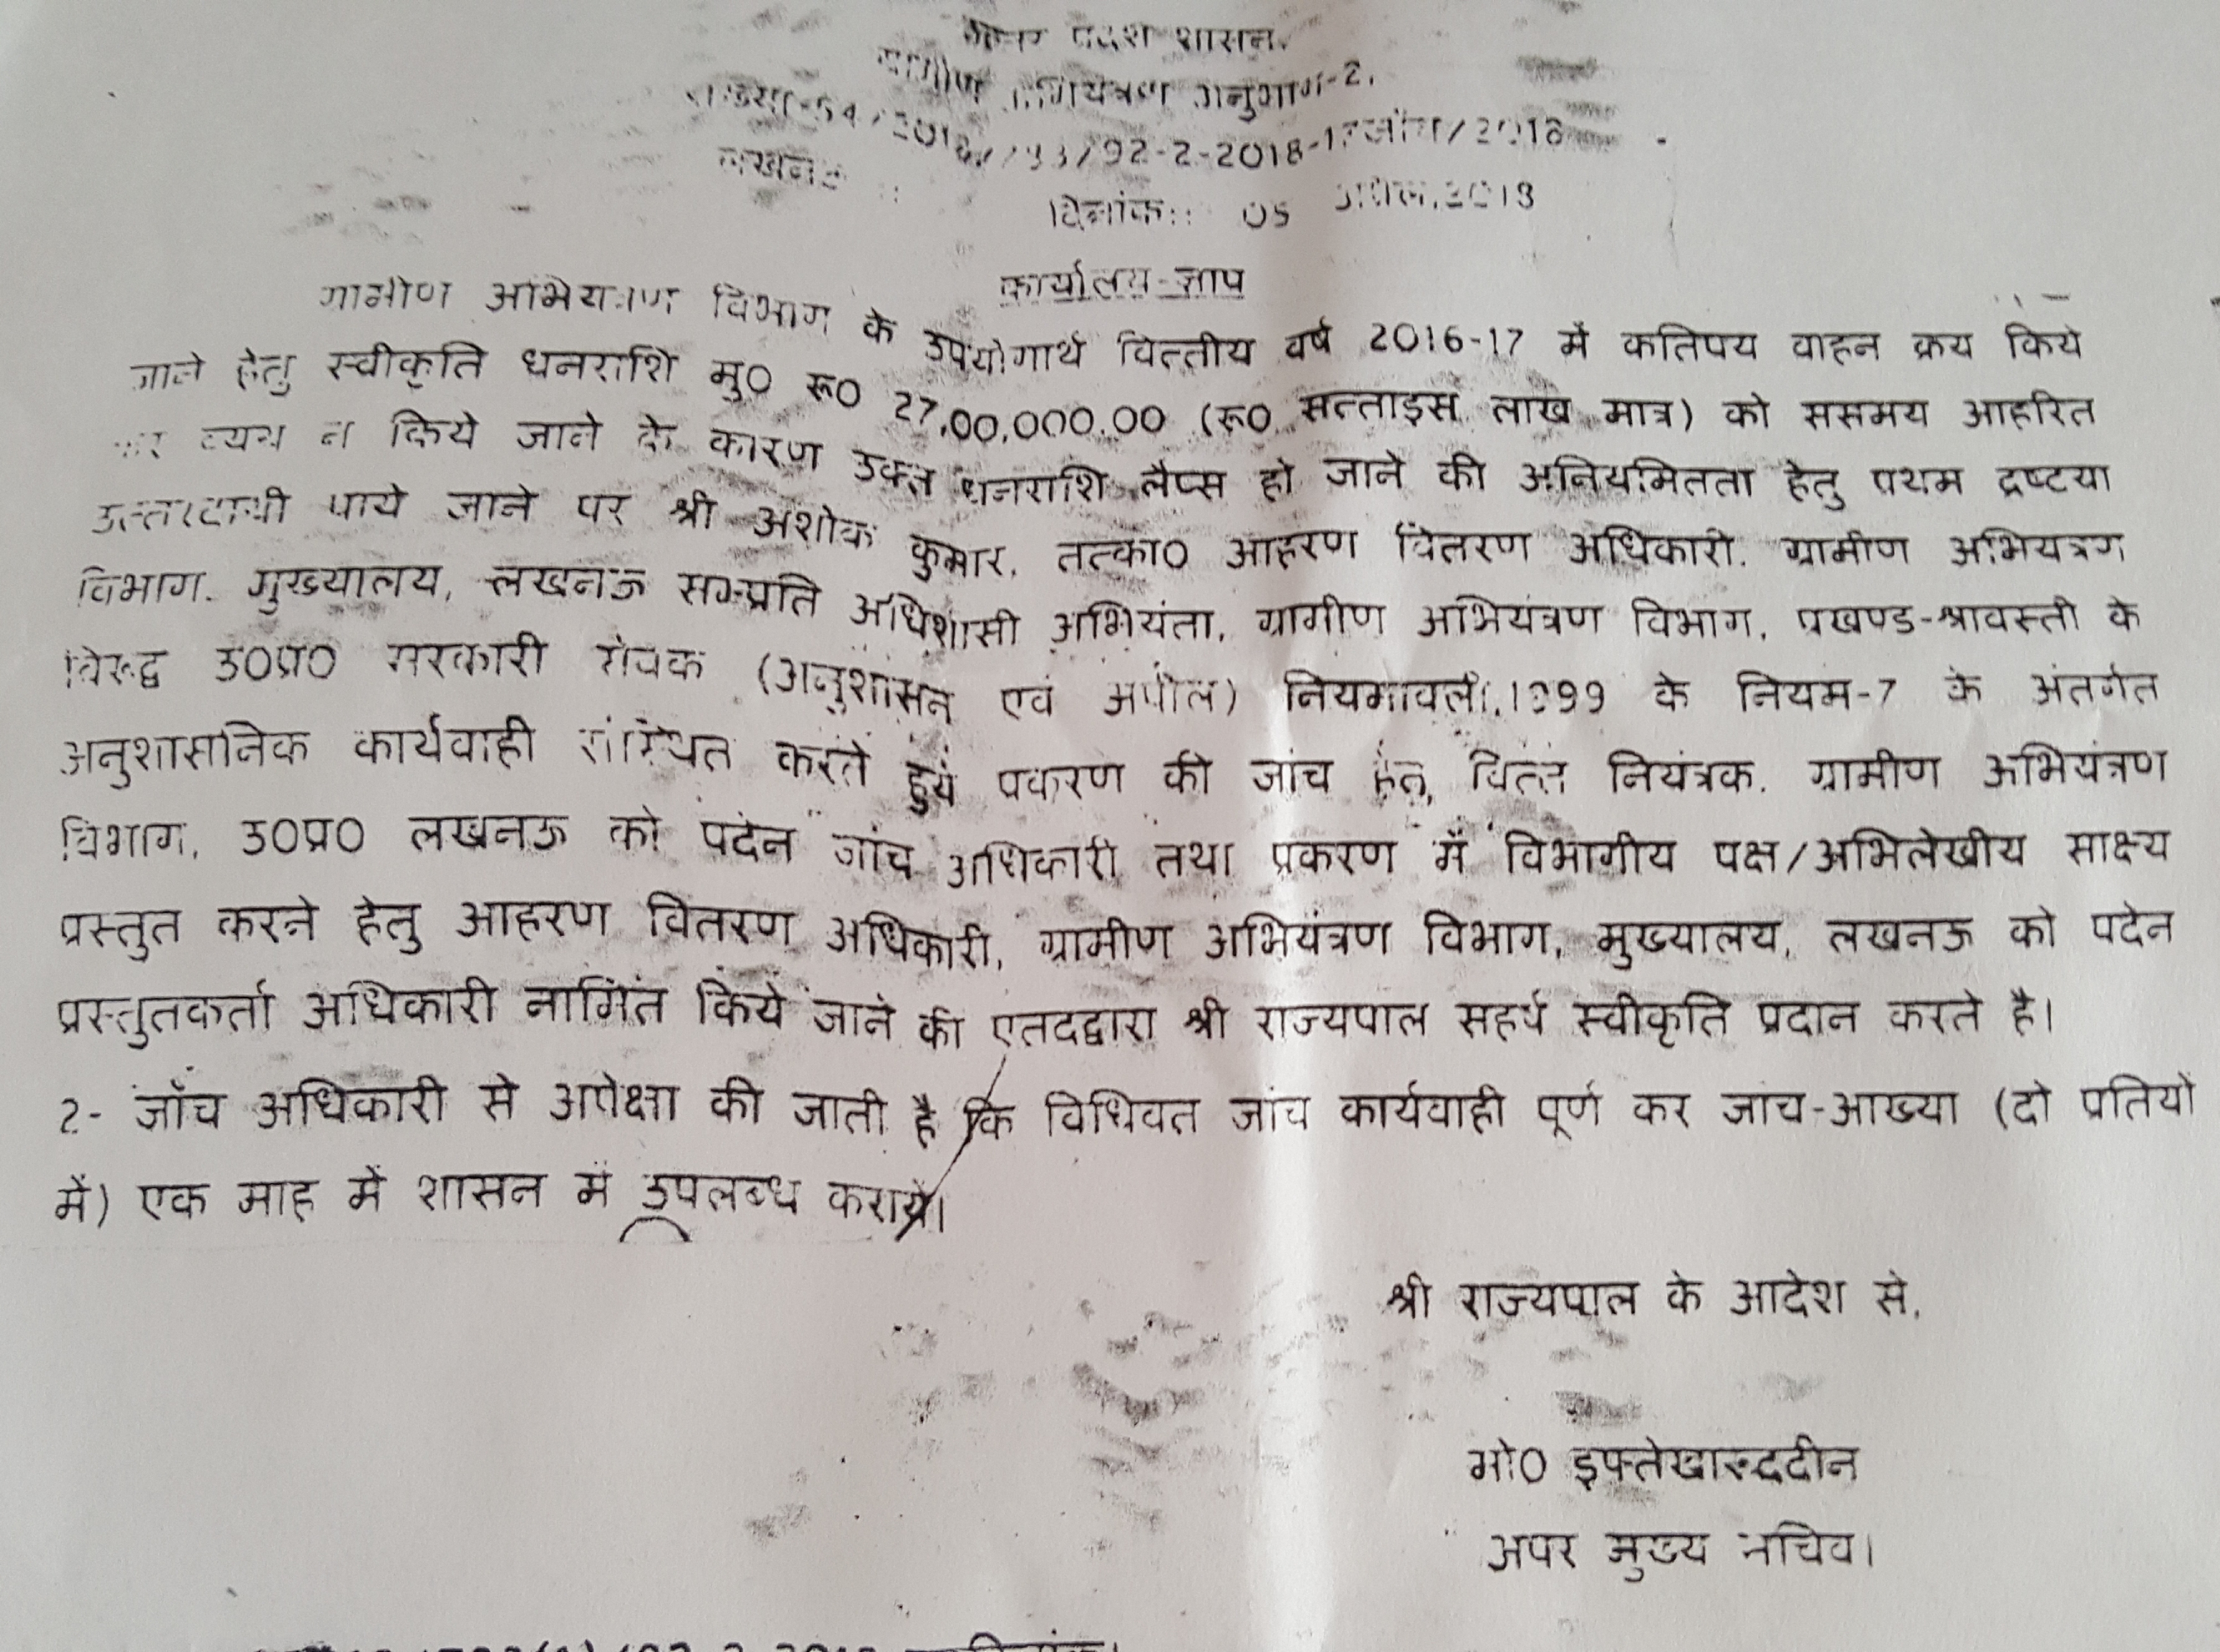 प्रदेश शासन,
अभियंत्रण अनुभाग-2,
92-2-2018-
लखनऊ :
दिनांक:: 05 अप्रैल,2018
कार्यालय-ज्ञाप
ग्रामीण अभियंत्रण विभाग के उपयोगार्थ वित्तीय वर्ष 2016-17 में कतिपय वाहन क्रय किये
जाने हेतु स्वीकृति धनराशि मु0 रू0 27,00,000.00 (रू0 सत्ताइस लाख मात्र) को ससमय आहरित
व्यय न किये जाने के कारण उक्त धनराशि लैप्स हो जाने की अनियमितता हेतु प्रथम द्रष्टया
उत्तरदायी पाये जाने पर श्री अशोक कुमार, तत्का0 आहरण वितरण अधिकारी, ग्रामीण अभियंत्रण
विभाग, मुख्यालय, लखनऊ सम्प्रति अधिशासी अभियंता, ग्रामीण अभियंत्रण विभाग, प्रखण्ड-श्रावस्ती के
विरूद्व उ0प्र0 सरकारी सेवक (अनुशासन एवं अपील) नियमावली,1999 के नियम-7 के अंतर्गत
अनुशासनिक कार्यवाही संस्थित करते हुये प्रकरण की जांच हेतु वित्त नियंत्रक, ग्रामीण अभियंत्रण
विभाग, उ0प्र0 लखनऊ को पदेन जांच अधिकारी तथा प्रकरण में विभागीय पक्ष/अभिलेखीय साक्ष्य
प्रस्तुत करने हेतु आहरण वितरण अधिकारी, ग्रामीण अभियंत्रण विभाग, मुख्यालय, लखनऊ को पदेन
प्रस्तुतकर्ता अधिकारी नामित किये जाने की एतदद्वारा श्री राज्यपाल सहर्ष स्वीकृति प्रदान करते है।
2- जॉच अधिकारी से अपेक्षा की जाती है कि विधिवत जांच कार्यवाही पूर्ण कर जाच-आख्या (दो प्रतियो
में) एक माह में शासन में उपलब्ध कराये।
श्री राज्यपाल के आदेश से,
मो0 इफ्तेखारूददीन
अपर मुख्य सचिव।